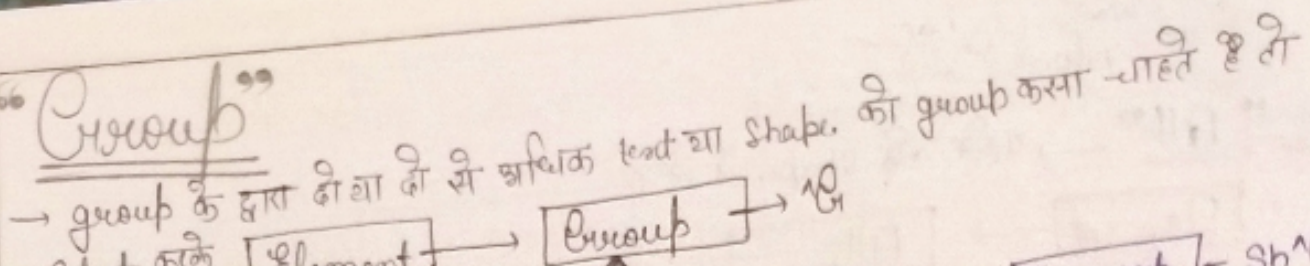 “Group”
→ group के द्वारा दो या दो से अधिक text या shape. को group करना चाहते है तो
करके Element → Group → ^G